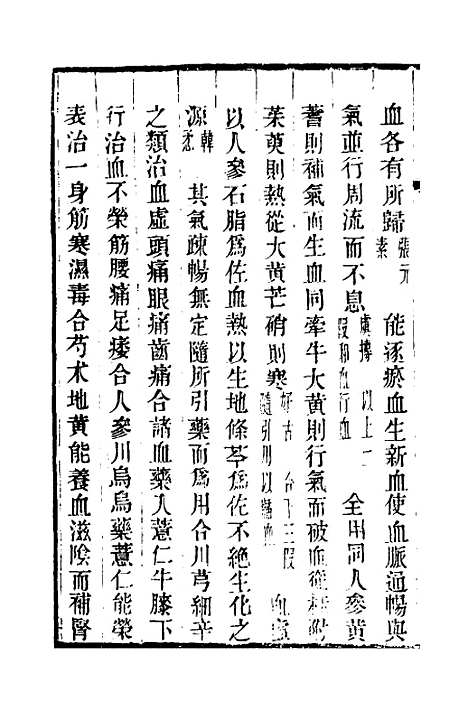 血各有所歸張元素 能逐瘀血生新血使血脈通暢與
氣並行周流而不息虞摶 以上二叚和血行血 全用同人參黃
蓍則補氣而生血同牽牛大黃則行氣而破血從桂附
茱萸則熱從大黃芒硝則寒好古 合下三叚隨引用以補血 血虛
以人參石脂爲佐血熱以生地條芩爲佐不絕生化之
源韓𢘅 其氣疎暢無定隨所引藥而爲用合川芎細辛
之類治血虛頭痛眼痛齒痛合諸血藥入薏仁牛膝下
行治血不榮筋腰痛足痿合人參川烏烏藥薏仁能榮
表治一身筋寒濕毒合芍朮地黃能養血滋陰而補腎